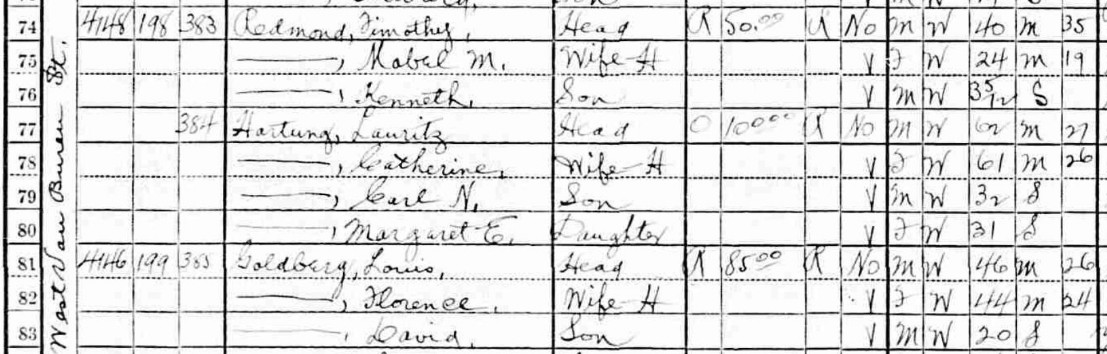 West Van Buren St.
74 4148 198 383 Redmond, Timothy, Head R 50.00 R No M W 40 M 35
75 ———, Mabel M. Wife-H V F W 24 M 19
76 ———, Kenneth, Son V M W 3 5/12 S
77 384 Hartung, Lauritz Head O 10000 R No M W 62 M 27
78 ———, Catherine, Wife-H V F W 61 M 26
79 ———, Carl N, Son V M W 32 S
80 ———, Margaret E. Daughter V F W 31 S
81 4146 199 385 Goldberg, Louis, Head R 85.00 R No M W 46 M 26
82 ———, Florence. Wife-H V F W 44 M 24
83 ———, David, Son V M W 20 S